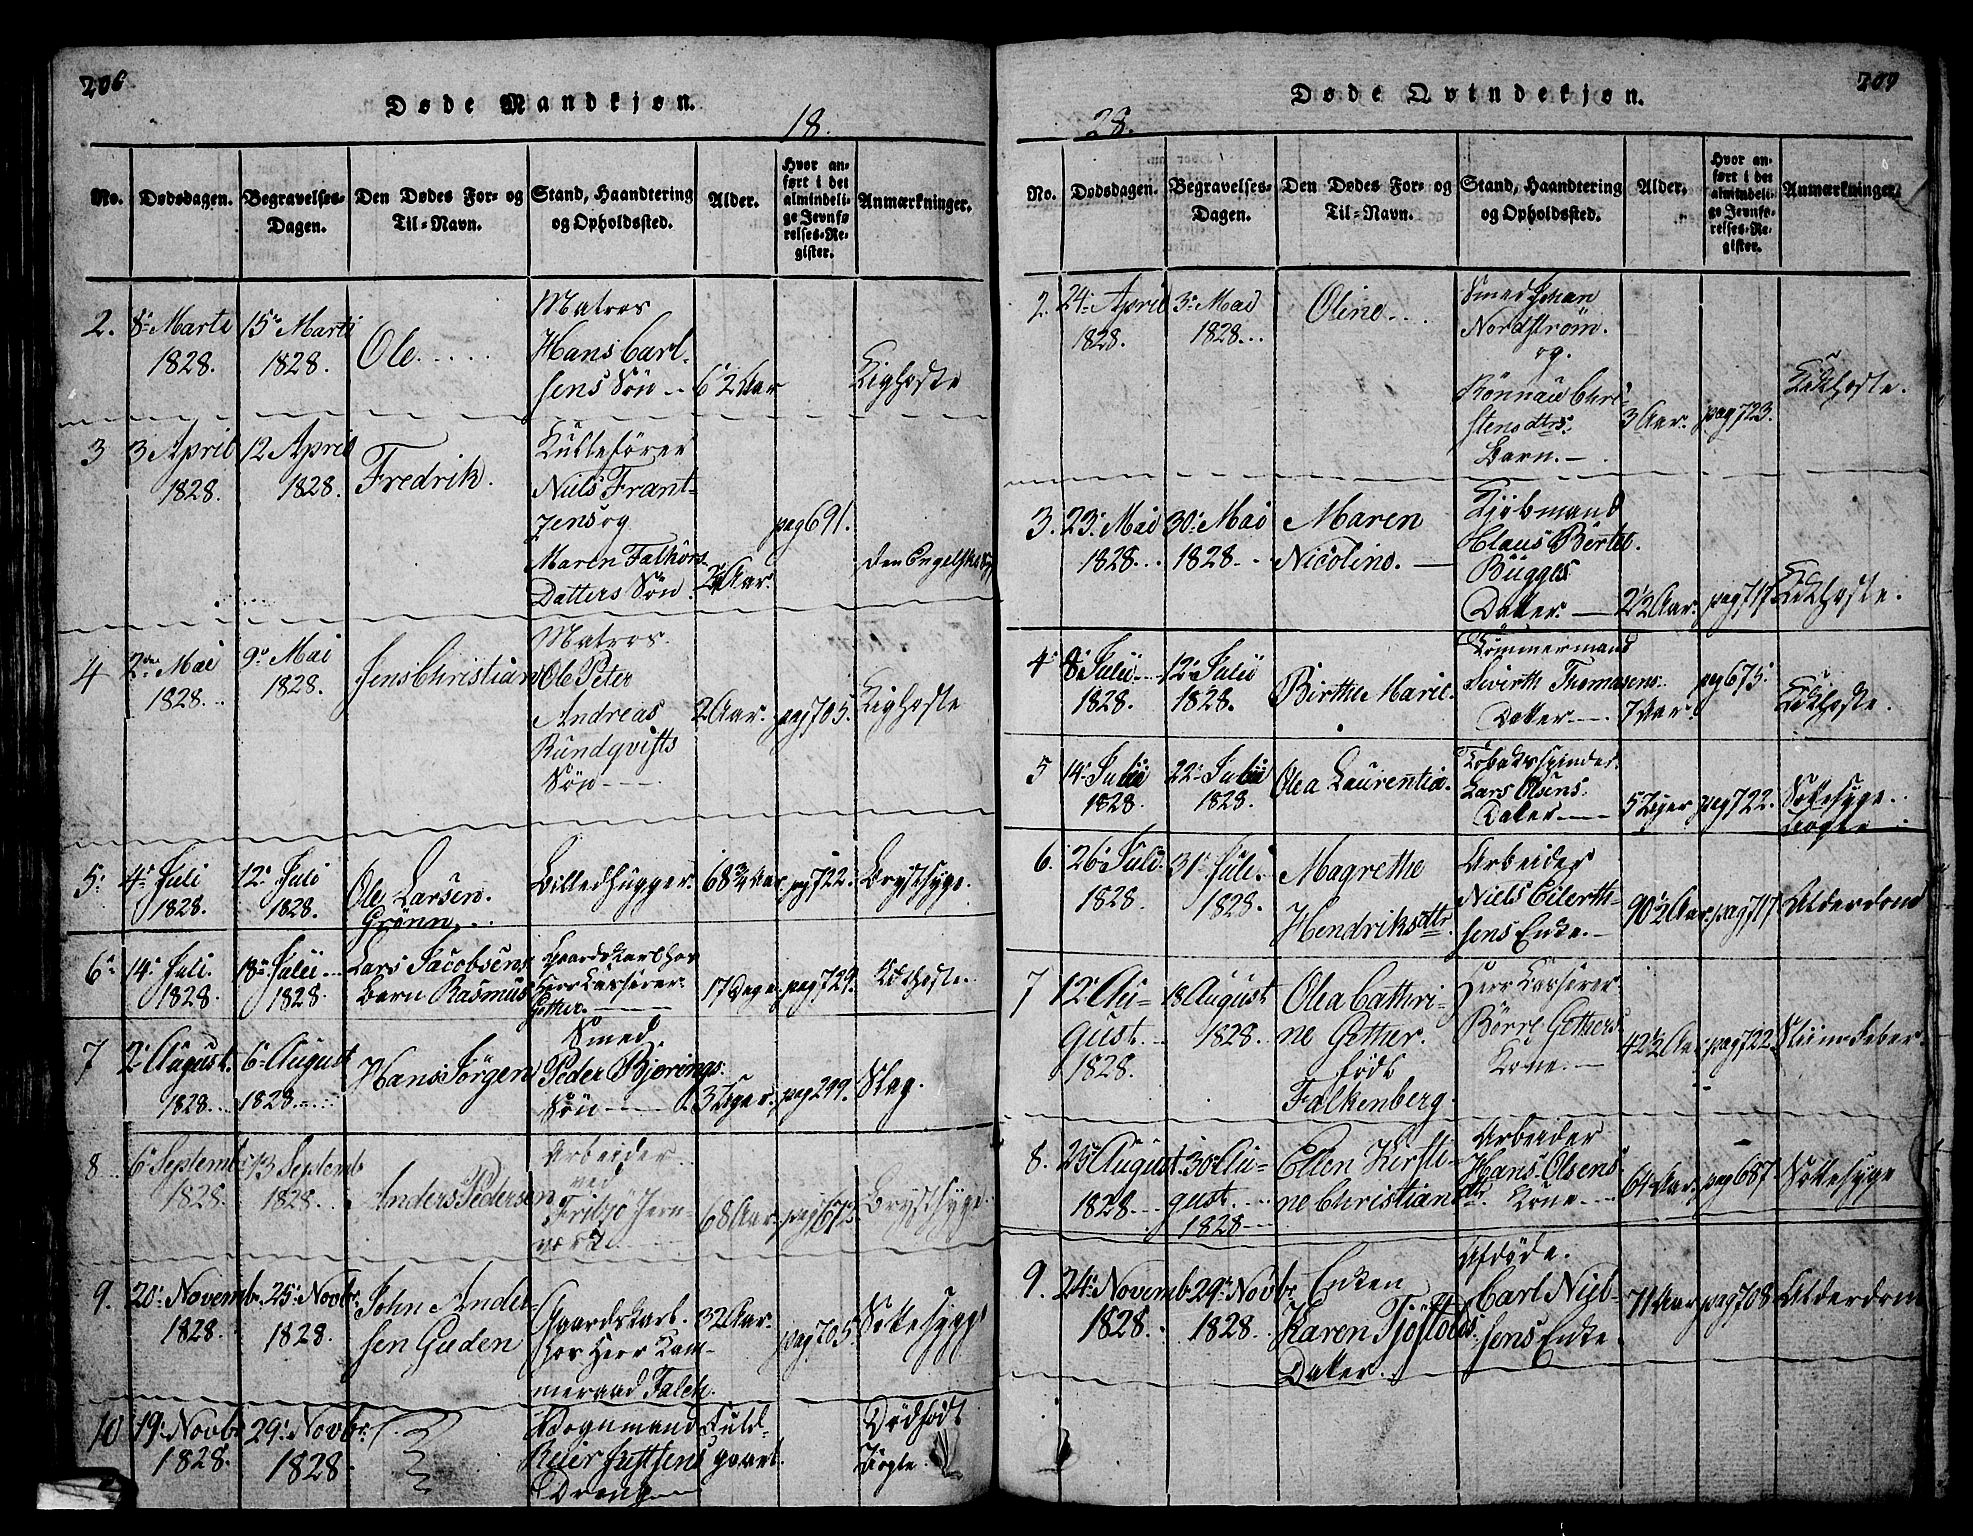 206
Døde Mandkjøn.
18.
No.
Dødsdagen.
Begravelses-
Dagen.
Den Dødes For- og
Til-Navn.
Stand, Haandtering
og Opholdssted.
Alder.
Hvor an-
ført i det
almindeli-
ge Jevnfø-
relses-Re-
gister.
Anmærkninger.
2. 8de Marti
1828.
15de Marti
1828.
Ole
Matros
Hans Carl-
sens Søn
6 1/2 Aar
Kighoste
3 3 April
1828.
12 April
1828.
Fredrik.
Kullefører
Niels Frant-
zens og
Maren Falkørs
Datters Søn.
Aar.
pag 691.
den Engelske Syge
4 2den Mai
1828.
9de Mai
1828.
Jens Christian
Matros
Ole Peter
Andreas
Rundqvists
Søn
2 Aar.
pag 705.
Kighoste
5. 4de Juli
1828.
12te Juli
1828.
Ole Larsen
Grønn
Billedhugger.
68 3/4 Aar
pag 722.
Brystsyge.
6 14de Juli.
1828.
18de Julii
1828.
Lars Jacobsens
Barn Rasmus
Gaardskarl hos
Herr Casserer
Gether.
17 Dage
pag 729.
Kikhoste.
7 2den August.
1828.
6te August
1828
Hans Jørgen
Smed
Peder Bjørings
Søn
3 Uger.
pag 299.
Slag.
8 6te Septemb.
1828.
13 Septemb
1828.
Anders Pedersen
Arbeider
ved
Fritzø Jern-
værk
68 Aar
pag 675
Brystsyge
9. 20de Novemb.
1828.
25de Novbr.
1828.
John Ander-
sen Guden
Gaardskarl
hos Herr Kam-
meraad Falck.
32 Aar.
pag 705.
Sottesyge
10 19de Novbr.
1828.
29de Novbr.
1828
Vognmand
Reier Justsens
Dreng
Fuld-
baaret.
Dødfødt
Ægte.
209
Døde Qvindekjøn.
28.
No.
Dødsdagen.
Begravelses-
Dagen.
Den Dødes For- og
Til-Navn.
Stand, Haandtering
og Opholdssted.
Alder.
Hvor an-
ført i det
almindeli-
ge Jevnfø-
relses-Re-
gister.
Anmærkninger.
2. 24de April
1828.
3de Mai
1828.
Oline
Smed Johan
Nordstrøm
og
Rønnau Chri-
stensdtrs.
Barn.
3 Aar.
pag 723.
Kikhoste.
3. 23de Mai
1828.
30te Mai
1828.
Maren
Nicoline.
Kjøbmand
Claus Bertel
Bugges
Datter.
2 1/2 Aar.
pag 717
Kikhoste.
4 8de Julii
1828.
12te Julii
1828.
Birthe Marie.
Tømmermand
Sivirth Thomasens
Datter
7 Aar
pag 675.
Kikhoste.
5 14de Julii
1828.
22de Julii
1828.
Olea Laurentia.
Tobaksspinder
Lars Olsens
Datter
5 Uger
pag 722.
Sottesyge.
Uægte
6. 26de Juli.
1828.
31te Juli.
1828.
Magrethe
Hendriksdtr.
Arbeider
Niels Eilerth-
sens Enke.
90 1/2 Aar.
pag 717
Alderdom
7 12te Au-
gust.
1828.
18 August
1828.
Olea Cathri-
ne Gether.
født
Falkenberg.
Herr Casserer
Børre Gethers
Kone
42 1/2 Aar
pag 722.
Sliim Feber
8. 25 August
1828
30te Au-
gust.
1828
Ellen Kirsti-
ne Christian
dtr.
Arbeider
Hans Olsens
Kone
64 Aar.
pag 687.
Sottesyge
9. 24de Novemb.
1828.
29de Novbr.
1828.
Enken
Karen Tjøstolds
Datter.
Afdøde
Carl Niel-
sens Enke.
71 Aar
pag 708
Alderdom